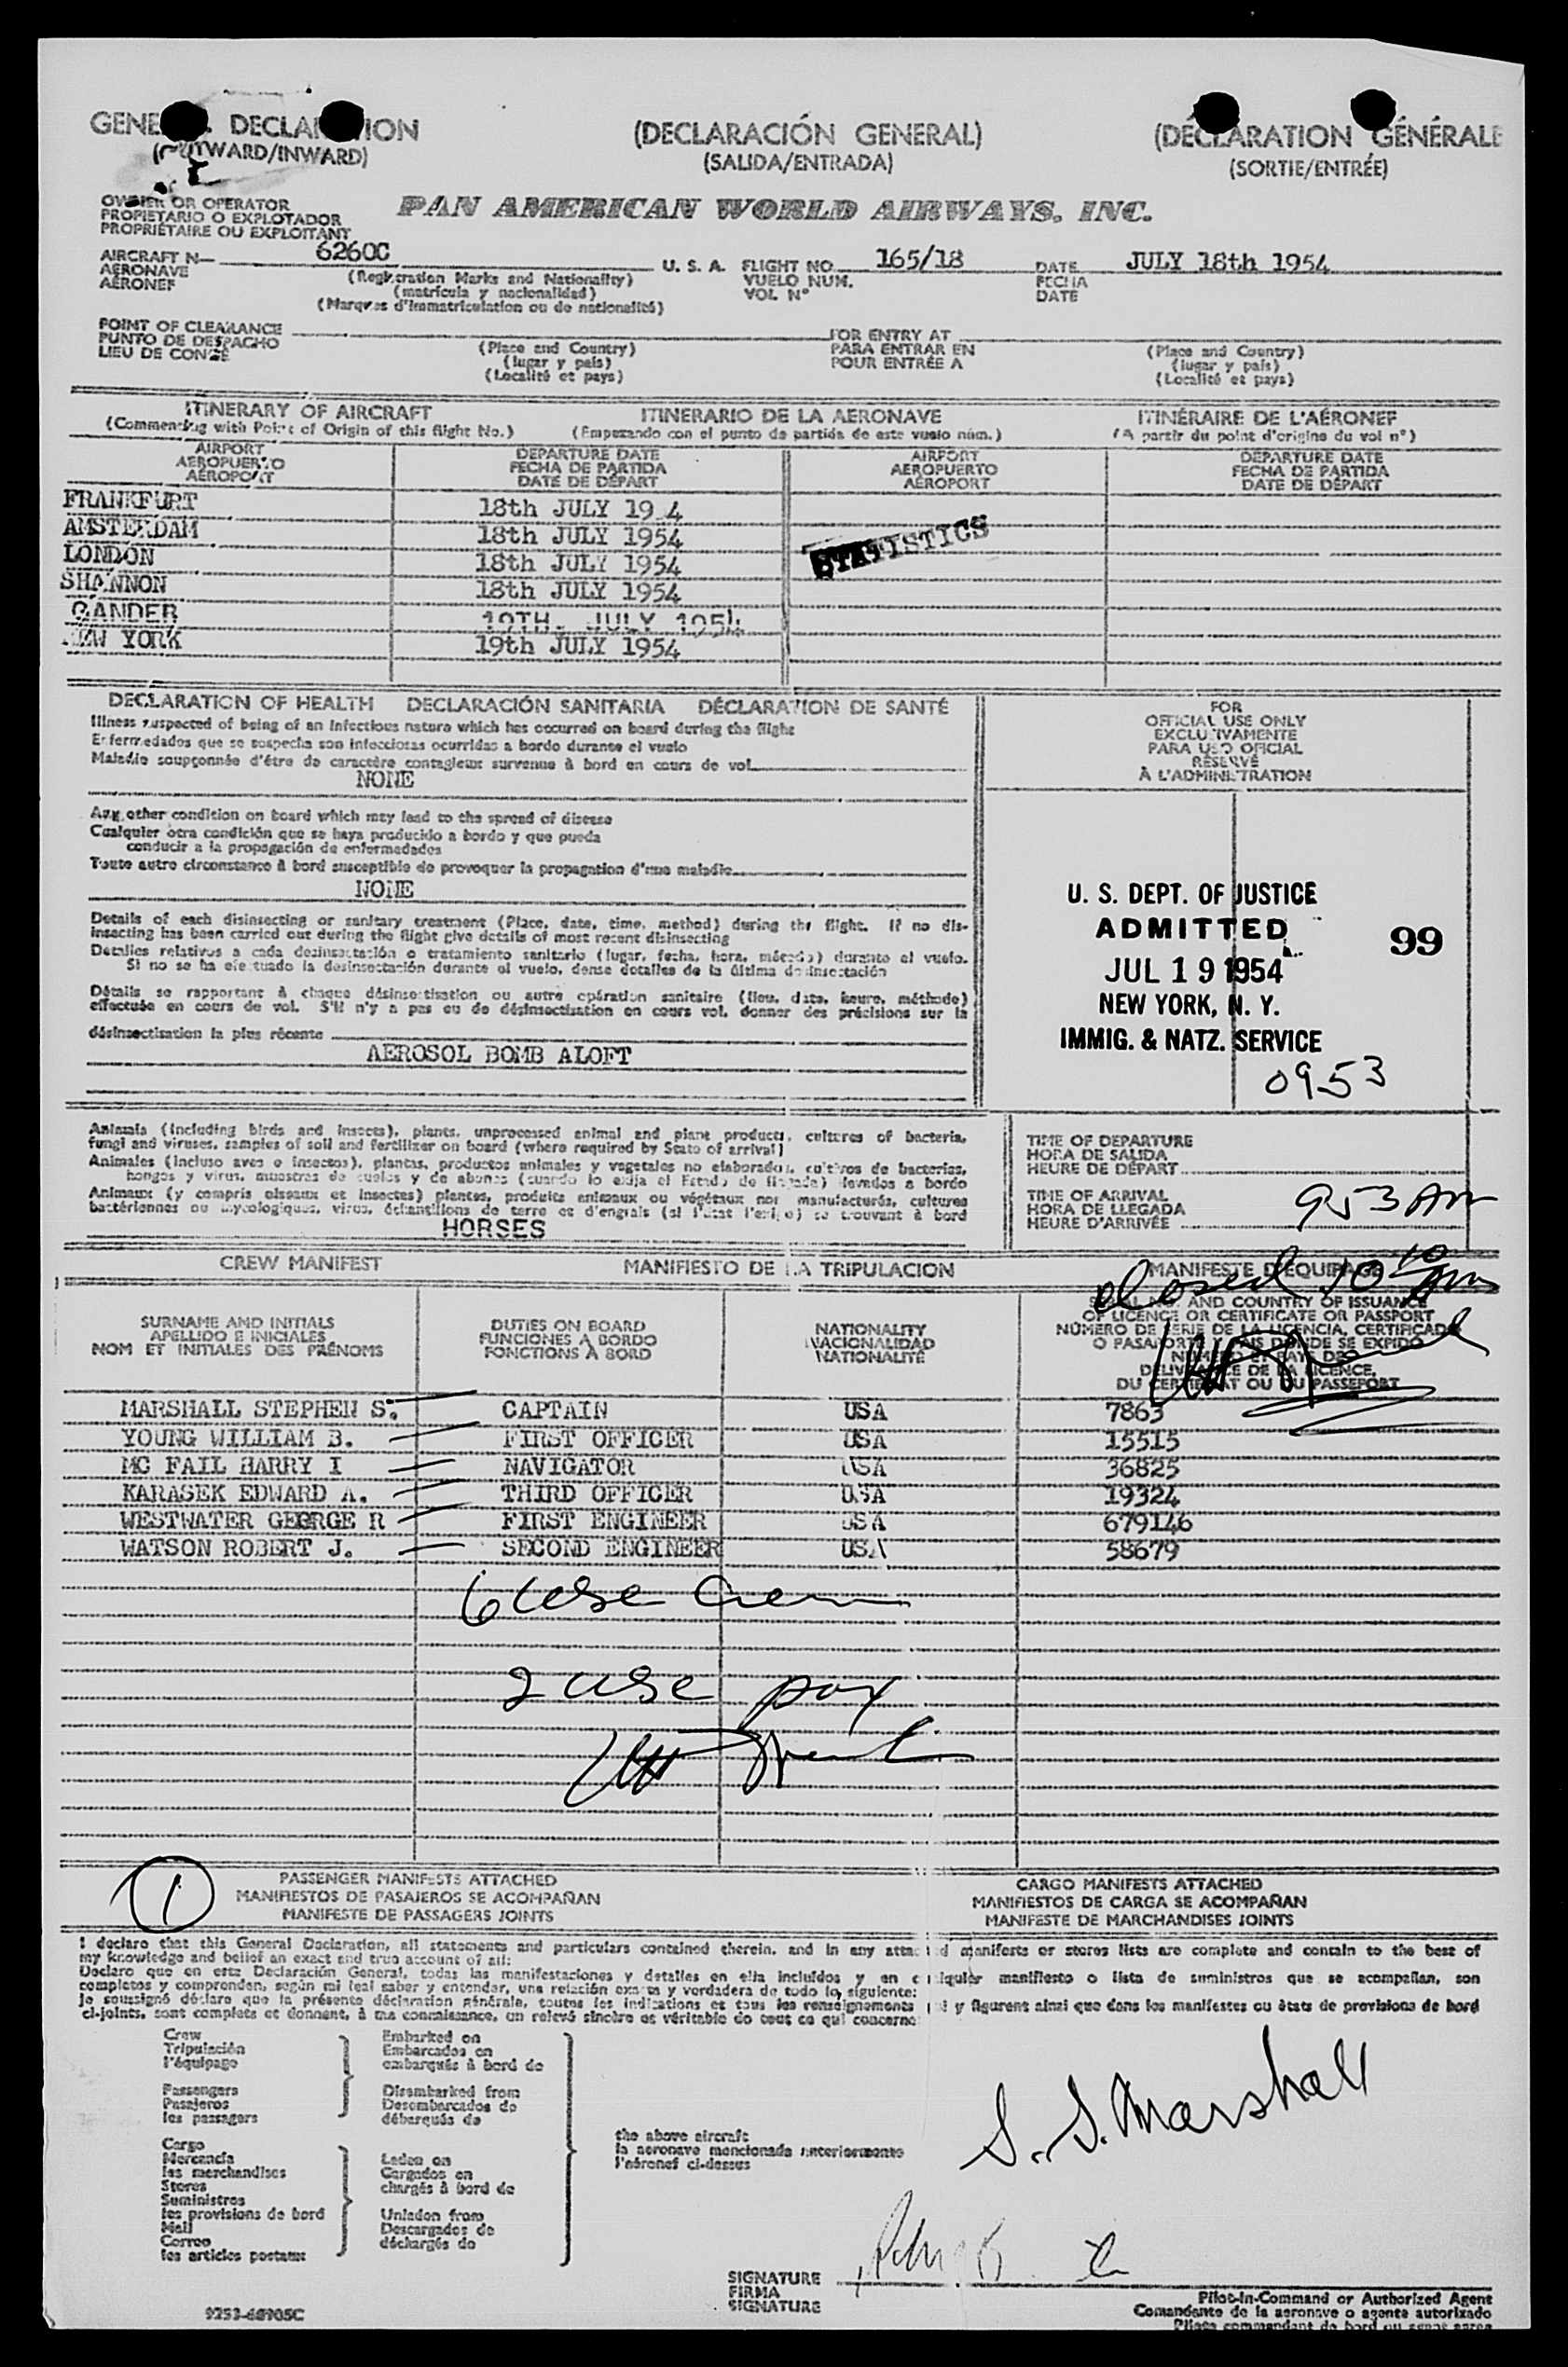 GENE DECLA ION
(OUTWARD/INWARD)
(DECLARACIÓN GENERAL)
(SALIDA/ENTRADA)
(DÉCLARATION GÉNÉRALE
(SORTIE/ENTRÉE)
OWNER OR OPERATOR
PROPIETARIO O EXPLOTADOR
PROPRIÉTAIRE OU EXPLOITANT
PAN AMERICAN WORLD AIRWAYS, INC.
AIRCRAFT N— 6260C U. S. A. FLIGHT NO. 165/18 DATE JULY 18th 1954
AERONAVE (Registration Marks and Nationality) VUELO NUM. FECHA
AÉRONEF (matrícula y nacionalidad) VOL N° DATE
(Marques d'immatriculation ou de nationalité)
POINT OF CLEARANCE FOR ENTRY AT
PUNTO DE DESPACHO (Place and Country) PARA ENTRAR EN (Place and Country)
LIEU DE CONGÉ (lugar y país) POUR ENTRÉE A (lugar y país)
(Localité et pays) (Localité et pays)
ITINERARY OF AIRCRAFT ITINERARIO DE LA AERONAVE ITINÉRAIRE DE L'AÉRONEF
(Commencing with Point of Origin of this flight No.) (Empezando con el punto de partida de este vuelo núm.) (A partir du point d'origine du vol n°)
AIRPORT DEPARTURE DATE AIRPORT DEPARTURE DATE
AEROPUERTO FECHA DE PARTIDA AEROPUERTO FECHA DE PARTIDA
AÉROPORT DATE DE DÉPART AÉROPORT DATE DE DÉPART
FRANKFURT 18th JULY 19 4
AMSTERDAM 18th JULY 1954
STATISTICS
LONDON 18th JULY 1954
SHANNON 18th JULY 1954
GANDER 19TH. JULY 1954
NEW YORK 19th JULY 1954
DECLARATION OF HEALTH DECLARACIÓN SANITARIA DÉCLARATION DE SANTÉ
Illness suspected of being of an infectious nature which has occurred on board during the flight
Enfermedades que se sospecha son infecciosas ocurridas a bordo durante el vuelo
Maladie soupçonnée d'être de caractère contagieux survenue à bord en cours de vol
NONE
Any other condition on board which may lead to the spread of disease
Cualquier otra condición que se haya producido a bordo y que pueda
conducir a la propagación de enfermedades
Toute autre circonstance à bord susceptible de provoquer la propagation d'une maladie
NONE
Details of each disinsecting or sanitary treatment (Place, date, time, method) during the flight. If no dis-
insecting has been carried out during the flight give details of most recent disinsecting
Detalles relativos a cada desinsectación o tratamiento sanitario (lugar, fecha, hora, método) durante el vuelo.
Si no se ha efectuado la desinsectación durante el vuelo, dense detalles de la última desinsectación
Détails se rapportant à chaque désinsectisation ou autre opération sanitaire (lieu, date, heure, méthode)
effectuée en cours de vol. S'il n'y a pas eu de désinsectisation en cours vol, donner des précisions sur la
désinsectisation la plus récente
AEROSOL BOMB ALOFT
FOR
OFFICIAL USE ONLY
EXCLUSIVAMENTE
PARA USO OFICIAL
RÉSERVÉ
À L'ADMINISTRATION
U. S. DEPT. OF JUSTICE
ADMITTED
99
JUL 19 1954
NEW YORK, N. Y.
IMMIG. & NATZ. SERVICE
0953
Animals (including birds and insects), plants, unprocessed animal and plant products, cultures of bacteria,
fungi and viruses, samples of soil and fertilizer on board (where required by State of arrival)
Animales (incluso aves e insectos), plantas, productos animales y vegetales no elaborados, cultivos de bacterias,
hongos y virus, muestras de suelos y de abonos (cuando lo exija el Estado de llegada) llevados a bordo
Animaux (y compris oiseaux et insectes) plantes, produits animaux ou végétaux non manufacturés, cultures
bactériennes ou mycologiques, virus, échantillons de terre et d'engrais (si l'état l'exige) se trouvant à bord
HORSES
TIME OF DEPARTURE
HORA DE SALIDA
HEURE DE DÉPART
TIME OF ARRIVAL
HORA DE LLEGADA
HEURE D'ARRIVÉE 953 AM
closed 10 10 Am
CREW MANIFEST MANIFIESTO DE LA TRIPULACION MANIFESTE D'EQUIPAGE
SURNAME AND INITIALS
APELLIDO E INICIALES
NOM ET INITIALES DES PRÉNOMS
DUTIES ON BOARD
FUNCIONES A BORDO
FONCTIONS À BORD
NATIONALITY
NACIONALIDAD
NATIONALITÉ
SERIAL NO. AND COUNTRY OF ISSUANCE
OF LICENCE OR CERTIFICATE OR PASSPORT
NÚMERO DE SERIE DE LA LICENCIA, CERTIFICADO
O PASAPORTE Y PAIS DONDE SE EXPIDO
NUMÉRO ET PAYS DE
DELIVRANCE DE LA LICENCE,
DU CERTIFICAT OU DU PASSEPORT
MARSHALL STEPHEN S. CAPTAIN USA 7863
YOUNG WILLIAM B. FIRST OFFICER USA 15515
MC FAIL HARRY I NAVIGATOR USA 36825
KARASEK EDWARD A. THIRD OFFICER USA 19324
WESTWATER GEORGE R FIRST ENGINEER USA 679146
WATSON ROBERT J. SECOND ENGINEER USA 58679
6 use Crew
2 use pax
1
PASSENGER MANIFESTS ATTACHED
MANIFIESTOS DE PASAJEROS SE ACOMPAÑAN
MANIFESTE DE PASSAGERS JOINTS
CARGO MANIFESTS ATTACHED
MANIFIESTOS DE CARGA SE ACOMPAÑAN
MANIFESTE DE MARCHANDISES JOINTS
I declare that this General Declaration, all statements and particulars contained therein, and in any attached manifests or stores lists are complete and contain to the best of
my knowledge and belief an exact and true account of all:
Declaro que en esta Declaración General, todas las manifestaciones y detalles en ella incluídos y en cualquier manifiesto o lista de suministros que se acompañan, son
completos y comprenden, según mi leal saber y entender, una relación exacta y verdadera de todo lo siguiente:
Je soussigné déclare que la présente déclaration générale, toutes les indications et tous les renseignements qui y figurent ainsi que dans les manifestes ou états de provisions de bord
ci-joints, sont complets et donnent, à ma connaissance, un relevé sincère et véritable de tout ce qui concerne:
Crew
Tripulación
l'équipage
Passengers
Pasajeros
les passagers
Cargo
Mercancía
les merchandises
Stores
Suministros
les provisions de bord
Mail
Correo
les articles postaux
Embarked on
Embarcados en
embarqués à bord de
Disembarked from
Desembarcados de
débarqués de
Laden on
Cargados en
chargés à bord de
Unladen from
Descargados de
déchargés de
the above aircraft
la aeronave mencionada anteriormente
l'aéronef ci-dessus
S. S. Marshall
SIGNATURE
FIRMA
SIGNATURE
Pilot-in-Command or Authorized Agent
Comandante de la aeronave o agente autorizado
Pilote commandant de bord ou agent agréé
9253-68905C